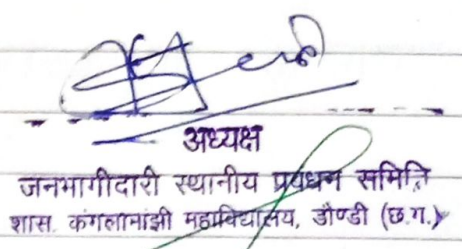 अध्यक्ष
जनभागीदारी स्थानीय प्रबंधन समिति
शास. कंगलामांझी महाविद्यालय, डौण्डी (छ.ग.)